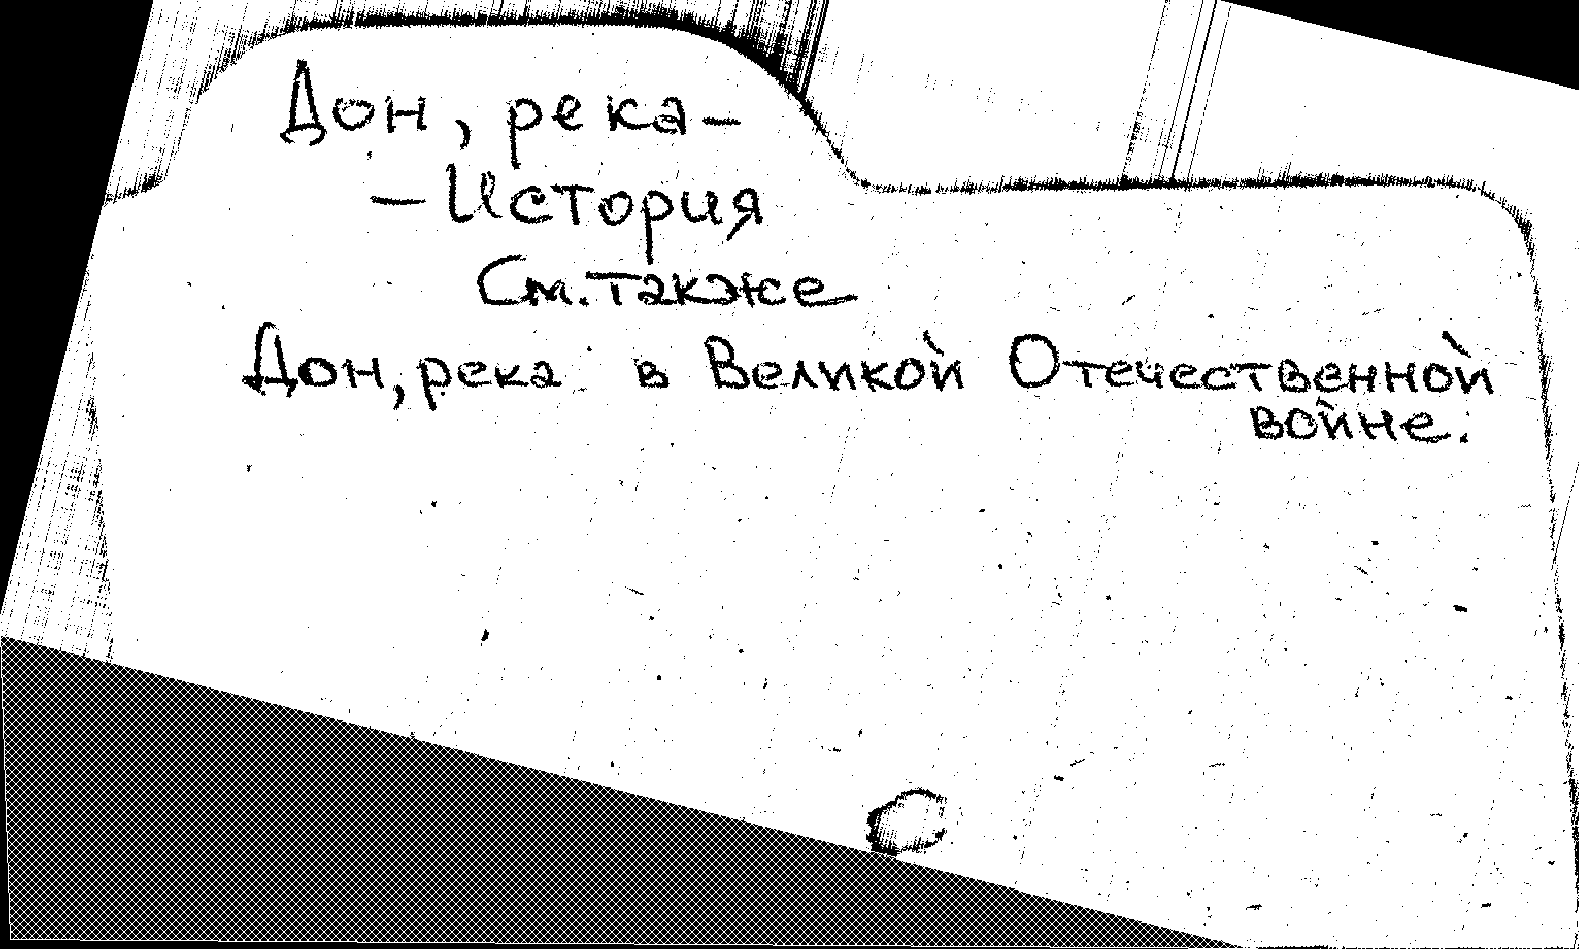 Дон, река –
– История
См. также
Дон, река в Великой Отечественной
войне.